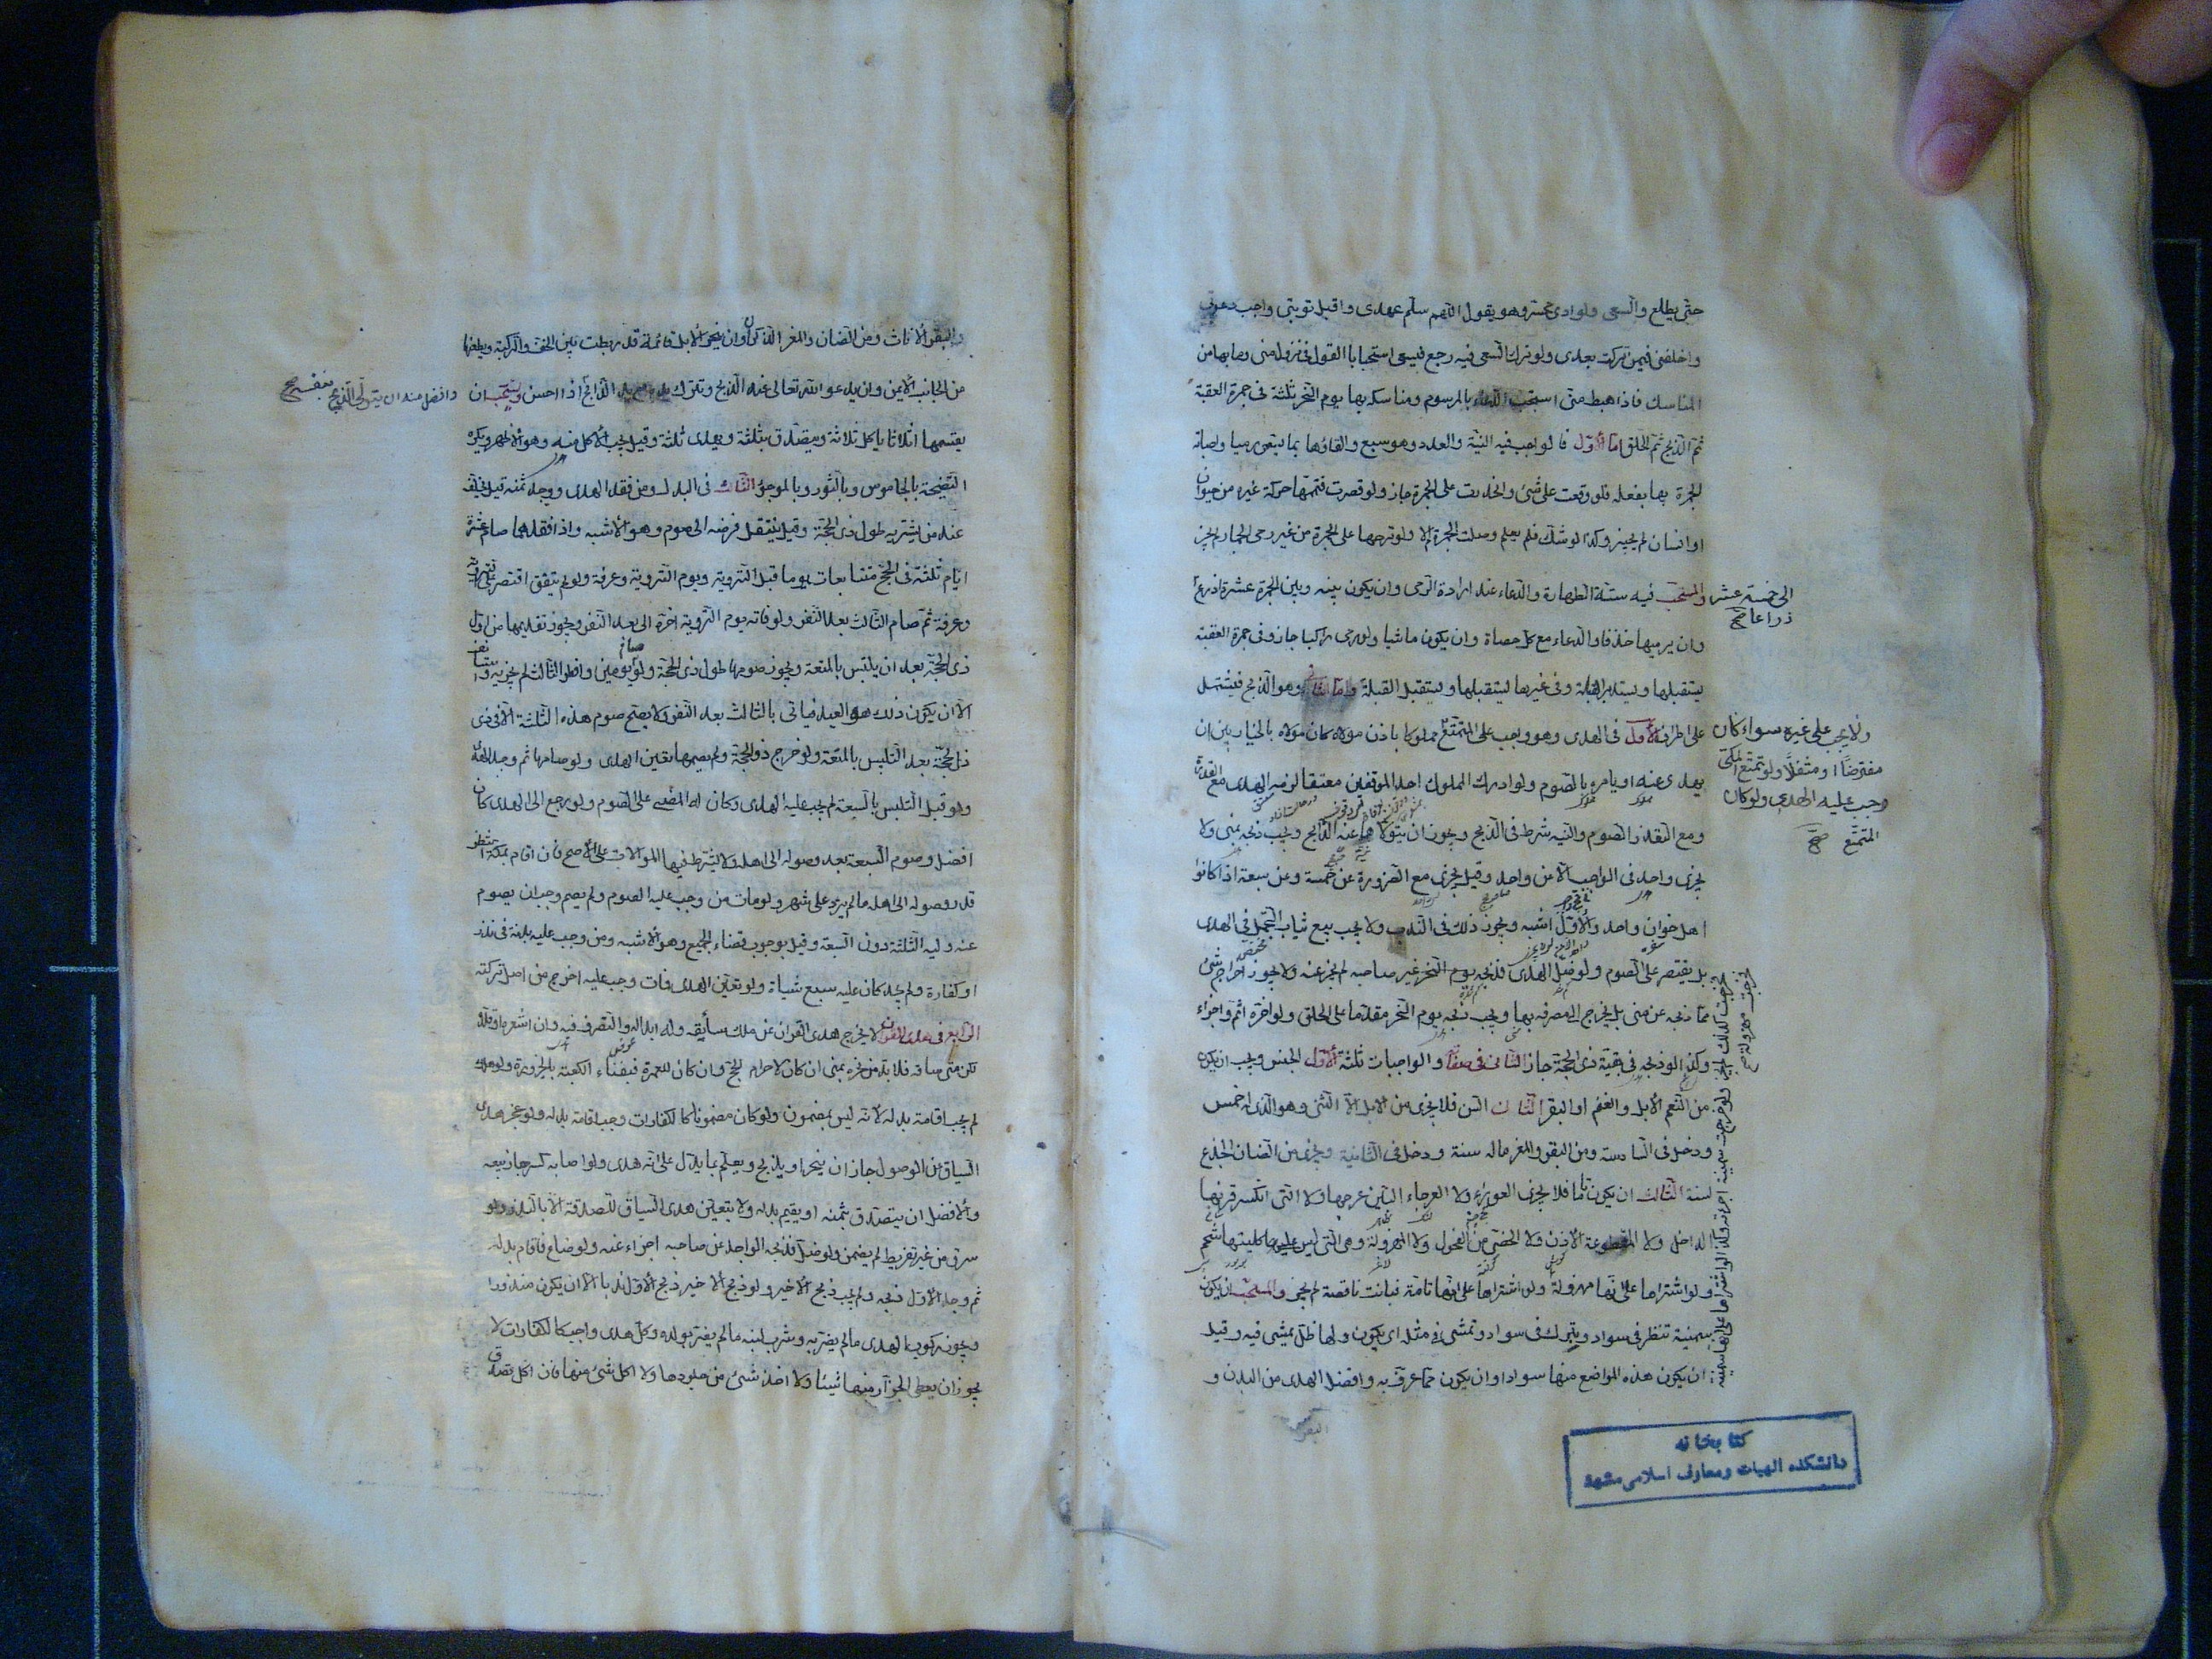 حتى يطلع والسعى ولو ادى محسر وهو يقول اللهم سلم عهدى واقبل توبتى واجب دعوتى
واخلفنى فيمن تركت بعدى ولو ترك السعى فيه رجع فسعى استحبابا القول فى نزول منى وما بها من
المناسك فاذا هبط منى استحب الدعاء بالمرسوم ومناسكه بها يوم النحر ثلثة رمى جمرة العقبة
ثم الذبح ثم الحلق اما الاول فالواجب فيه النية والعدد وهو سبع والقاؤها بما يسمى رميا واصابة
الجمرة بها بفعله فلو وقعت على شئ وانحدرت على الجمرة جاز ولو قصرت فتممها حركة غيره من حيوان
او انسان لم يجز وكذا لو شك فلم يعلم وصلت الجمرة ام لا ولو طرحها على الجمرة من غير رمى الجمار لم يجز
والمستحب فيه ستة الطهارة والدعاء عند ارادة الرمى وان يكون بينه وبين الجمرة عشرة اذرع
الى خمسة عشر
ذراعا صح
وان يرميها خذفا والدعاء مع كل حصاة وان يكون ماشيا ولو رمى راكبا جاز وفى جمرة العقبة
يستقبلها ويستدبر القبلة وفى غيرها يستقبلها ويستقبل القبلة واما الثانى وهو الذبح فيشتمل
على اطراف الاول فى الهدى وهو واجب على المتمتع ولو كان مملوكا باذن مولاه كان مولاه بالخيار بين ان
ولا يجب على غيره سواء كان
مفترضا او متنفلا ولو تمتع المكى
وجب عليه الهدى ولو كان
المتمتع صح
يهدى عنه او يامره بالصوم ولو ادرك المملوك احد الموقفين معتقا لزمه الهدى مع القدرة
ومع التعذر الصوم والنية شرط فى الذبح ويجوز ان يتولاها عنه الذابح ويجب ذبحه بمنى ولا
يجزى واحد فى الواجب الا عن واحد وقيل يجزى مع الضرورة عن خمسة وعن سبعة اذا كانوا
اهل خوان واحد والاول اشبه ويجوز ذلك فى الندب ولا يجب بيع ثياب التجمل فى الهدى
بل يقتصر على الصوم ولو ضل الهدى فذبحه يوم النحر غير صاحبه لم يجز عنه ولا يجوز اخراج شئ
مما ذبحه عن منى بل يخرج الى مصرفه بها ويجب ذبحه يوم النحر مقدما على الحلق ولو اخره اثم واجزاء
وكذا لو ذبحه فى بقية ذى الحجة جاز الثانى فى صفاته والواجبات ثلثة الاول الجنس ويجب ان يكون
من النعم الابل والغنم او البقر الثانى السن فلا يجزى من الابل الا الثنى وهو الذى له خمس
ودخل فى السادسة ومن البقر والمعز ما له سنة ودخل فى الثانية ويجزى من الضان الجذع
لسنة الثالث ان يكون تاما فلا يجزى العوراء ولا العرجاء البين عرجها ولا التى انكسر قرنها
الداخل ولا المقطوعة الاذن ولا الخصى من الفحول ولا المهزولة وهى التى ليس على كليتيها شحم
ولو اشتراها على انها مهزولة ولو اشتراها على انها تامة فبانت ناقصة لم يجز والمستحب ان يكون
سمينة تنظر فى سواد وتبرك فى سواد وتمشى فى مثله اى يكون ولها ظل تمشى فيه وقيل
ان يكون هذه المواضع منها سوادا وان يكون مما عرف به وافضل الهدى من البدن و
البقر
كتابخانه
دانشكده الهيات ومعارف اسلامى مشهد
والبقر الاناث ومن الضان والمعز الذكران وان ينحر الابل قائمة قد ربطت بين الخف والركبة ويطعنها
من الجانب الايمن وان يدعو الله تعالى عند الذبح ويترك يده مع يد الذابح اذا احسن ويستحب ان
وافضل منه ان يتولى الذبح بنفسه صح
يقسمها اثلاثا ياكل ثلاثة ويتصدق بثلثة ويهدى ثلثة وقيل يجب الاكل منه وهو الاظهر ويكره
التضحية بالجاموس وبالثور وبالموجوء الثالث فى البدل ومن فقد الهدى ووجد ثمنه قيل يخلفه
عند من يشتريه طول ذى الحجة وقيل ينتقل فرضه الى صوم وهو الاشبه واذا فقدهما صام عشرة
ايام ثلثة فى الحج متتابعات يوما قبل التروية ويوم التروية وعرفة ولو لم يتفق اقتصر على التروية
وعرفة ثم صام الثالث بعد النفر ولو فاته يوم التروية اخره الى بعد النفر ويجوز تقديمها من اول
ذى الحجة بعد ان يلتبس بالمتعة ويجوز صومها طول ذى الحجة ولو صام يومين وافطر الثالث لم يجزيه واستانف
الا ان يكون ذلك هو العيد فياتى بالثالث بعد النفر ولا يصح صوم هذه الثلثة الا فى ذى
ذى الحجة بعد التلبس بالمتعة ولو خرج ذو الحجة ولم يصمها تعين الهدى ولو صامها ثم وجد الهدى
ولو قبل التلبس بالسبعة لم يجب عليه الهدى وكان له المضى على الصوم ولو رجع الى الهدى كان
افضل وصوم السبعة بعد وصوله الى اهله ولا يشترط فيها الموالات على الاصح فان اقام بمكة انتظر
قدر وصوله الى اهله ما لم يزد على شهر ولو مات من وجب عليه الصوم ولم يصم وجب ان يصوم
عنه وليه الثلثة دون السبعة وقيل بوجوب قضاء الجميع وهو الاشبه ومن وجب عليه بدنة فى نذر
او كفارة ولم يجد كان عليه سبع شياة ولو تعين الهدى فمات وجب عليه اخرج من اصل تركته
الرابع فى هدى القران لا يخرج هدى القران عن ملك سايقه وله ابداله والتصرف فيه وان اشعره او قلده
لكن متى ساقه فلا بد من نحره بمنى ان كان لاحرام الحج وان كان للعمرة فبفناء الكعبة بالجزورة ولو هلك
لم يجب اقامة بدله لانه ليس بمضمون ولو كان مضمونا كالكفارات وجب اقامة بدله ولو عجز هدى
السياق عن الوصول جاز ان ينحر او يذبح ويعلم بما يدل على انه هدى ولو اصابه كسر جاز بيعه
والافضل ان يتصدق بثمنه او يقيم بدله ولا يتعين هدى السياق للصدقة الا بالنذر ولو
سرق من غير تفريط لم يضمن ولو ضل فذبحه الواجد عن صاحبه اجزاء عنه ولو ضاع فاقام بدله
ثم وجد الاول ذبحه ولم يجب ذبح الاخير ولو ذبح الاخير ذبح الاول ندبا الا ان يكون منذورا
ويجوز ركوب الهدى ما لم يضر به وشرب لبنه ما لم يضر بولده وكل هدى واجب كالكفارات لا
يجوز ان يعطى الجزار منها شيئا ولا اخذ شئ من جلودها ولا اكل شئ منها فان اكل تصدق